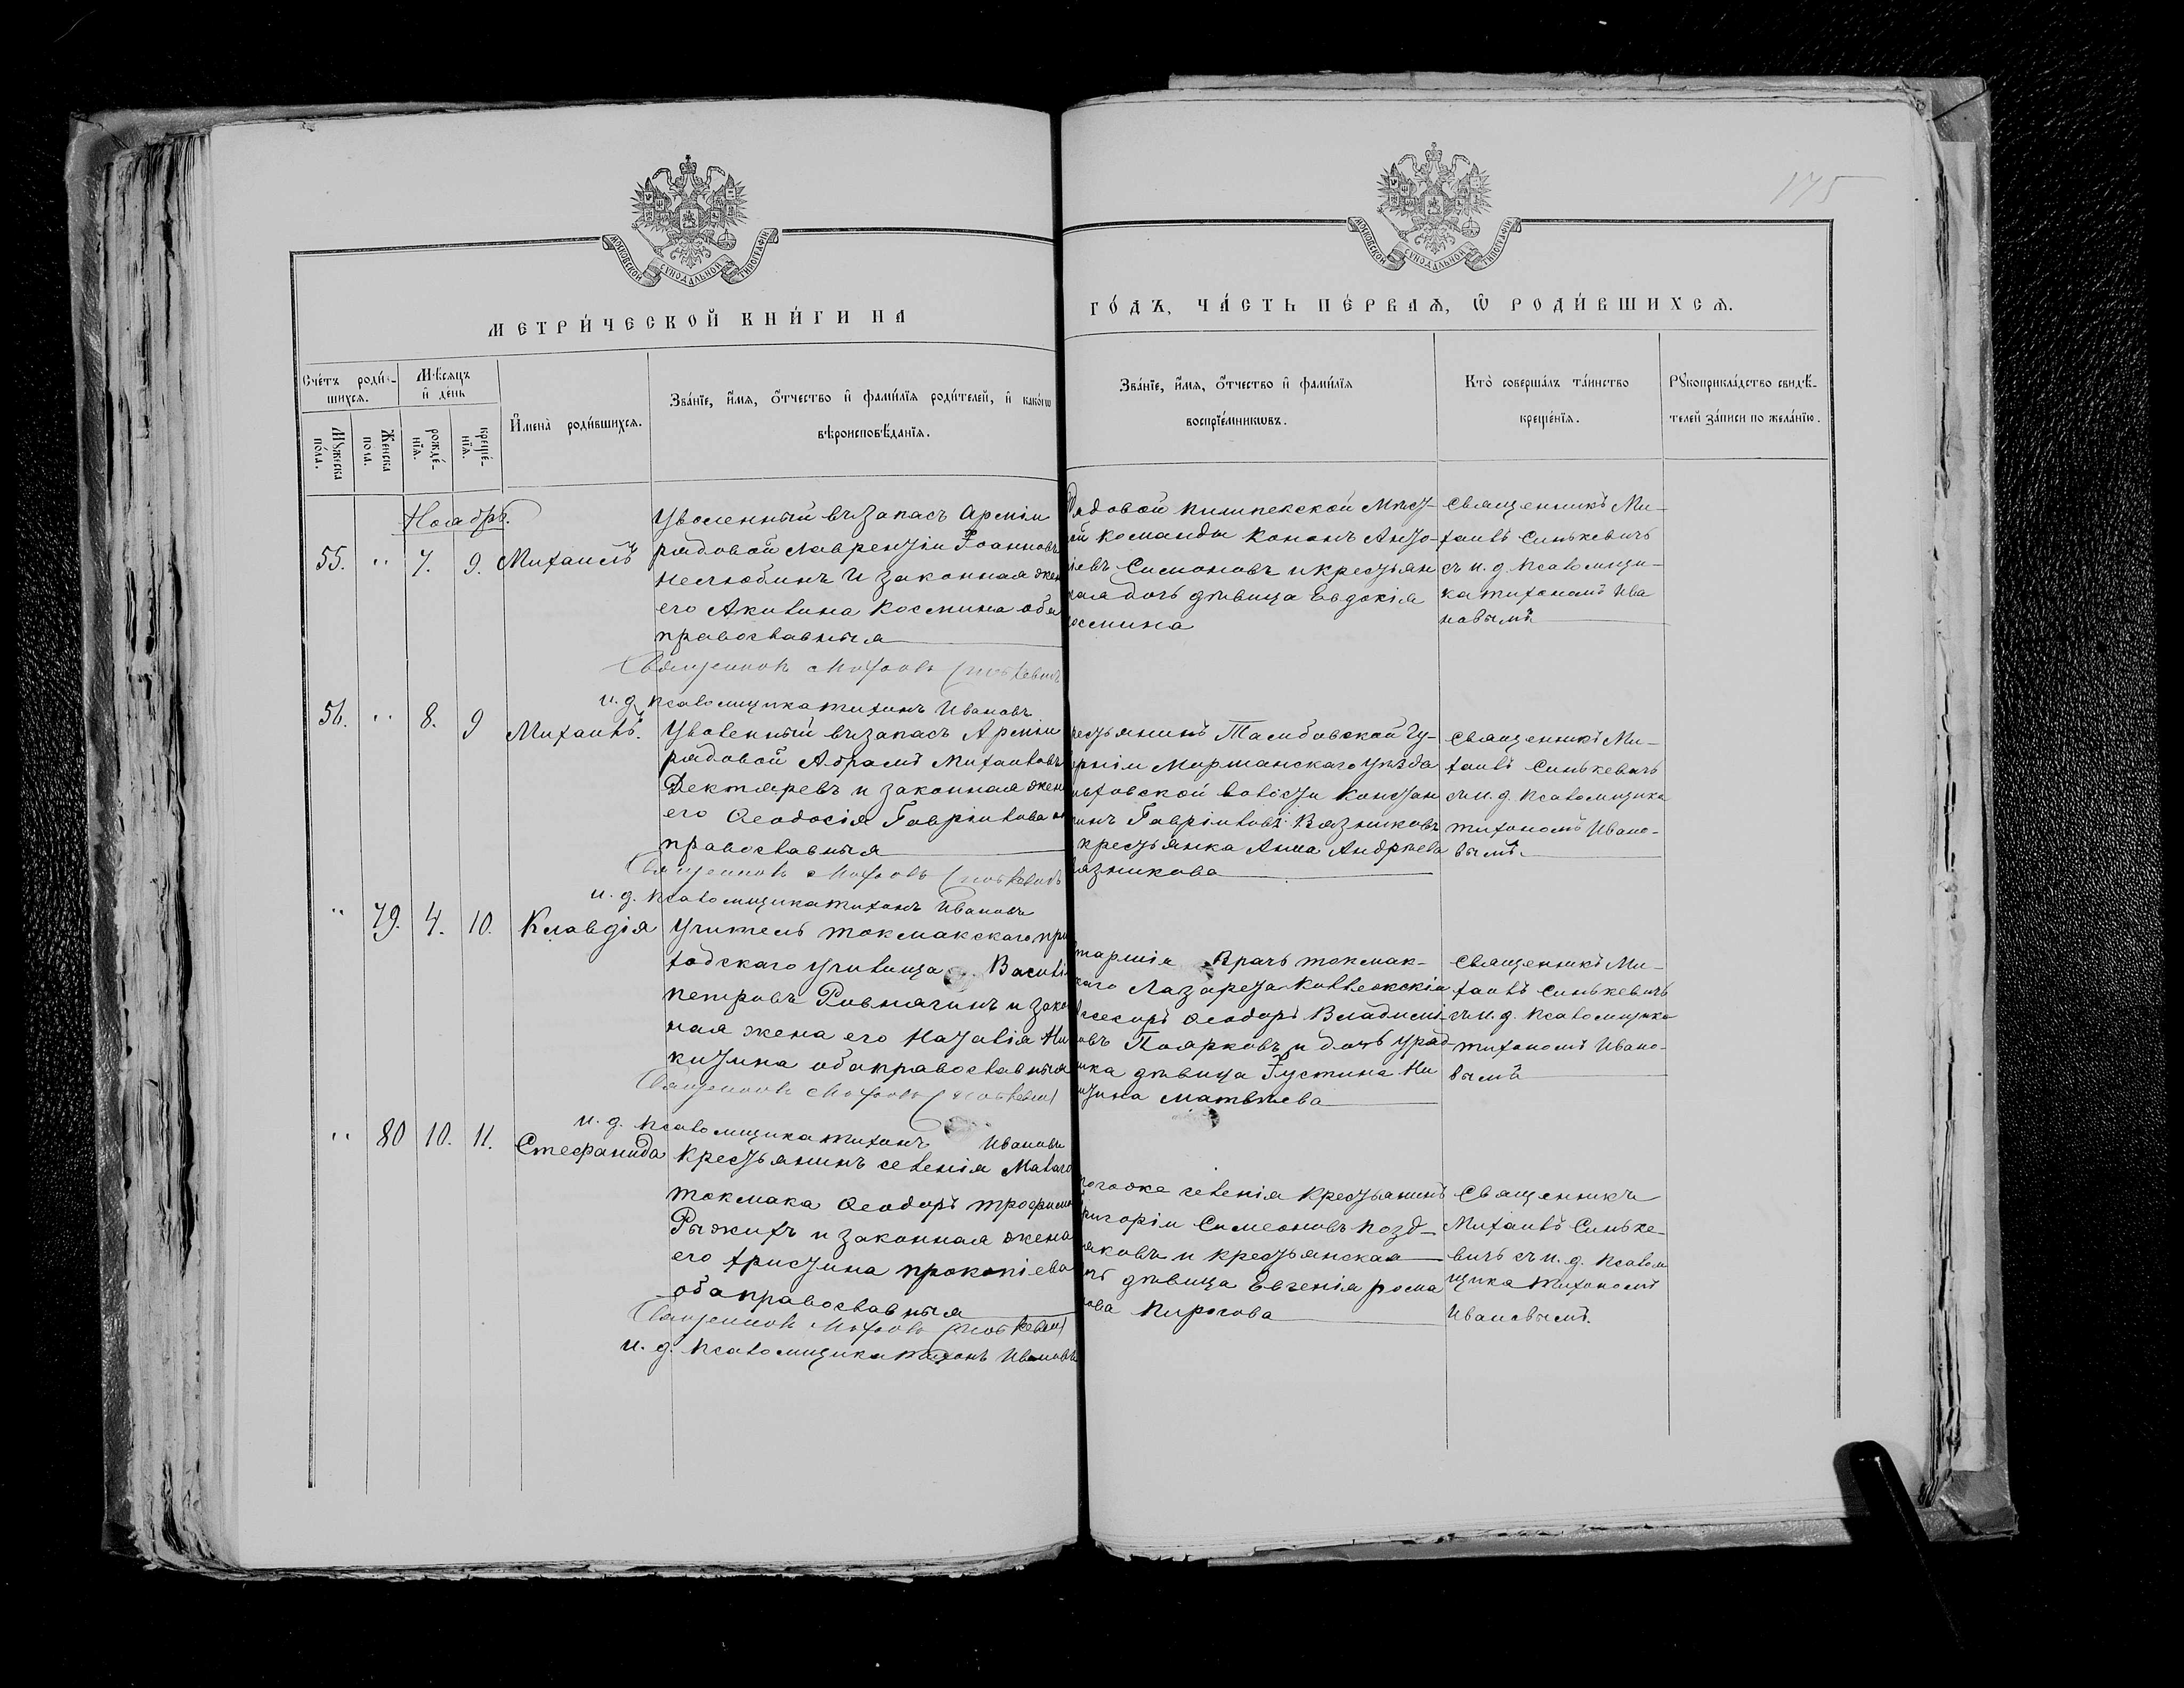 175
МОСКОВСКОЙ СѴНОДАЛЬНОЙ ТИПОГРАФІИ
МОСКОВСКОЙ СѴНОДАЛЬНОЙ ТИПОГРАФІИ
МЕТРИ́ЧЕСКОЙ КНИ́ГИ НА
ГО́ДЪ, ЧА́СТЬ ПЕ́РВАѦ, Ѿ РОДИ́ВШИХСѦ.
Сче́тъ роди́в-
шихсѧ.
Мѣ́сѧцъ
и҆ де́нь
Мꙋ́жеска
по́ла.
Же́нска
пола.
рожде́-
нїѧ.
креще́-
нїѧ.
И҆мена̀ роди́вшихсѧ.
Зва́нїе, и҆́мѧ, ѻ҆́тчество и҆ фами́лїѧ роди́телей, и҆ како́гѡ
вѣроисповѣ́данїѧ.
Зва́нїе, и҆́мѧ, ѻ҆́тчество и҆ фами́лїѧ
воспрїе́мникѡвъ.
Кто̀ соверша́лъ та́инство
креще́нїѧ.
Рꙋкоприкла́дство свидѣ́-
телей за́писи по жела́нїю.
Ноябрь.
55. " 7. 9. Михаилъ
Уволенный въ запасъ Арміи
рядовой Лаврентій Іоанновъ
Нелюбинъ и законная жен
его Акилина Космина оба
православныя
Священникъ Михаилъ Синькевичъ
и. д. псаломщика Тихонъ Ивановъ
Рядовой Пишпекской Мѣст-
ой команды Кононъ Анто-
іевъ Симоновъ и крестьян
кая дочь дѣвица Евдокія
осмина
Священникъ Ми-
хаилъ Синькевичъ
съ и. д. псаломщи-
ка Тихономъ Ива
новымъ
56. " 8. 9 Михаилъ.
Уволенный въ запасъ Арміи
рядовой Абрамъ Михаиловъ
Дектяревъ и законная жен
его Ѳеодосія Гавріилова
православныя
Священникъ Михаилъ Синькевичъ
и. д. псаломщика Тихонъ Ивановъ
рестьянинъ Тамбовской Гу-
ерніи Моршанскаго уѣзда
ховской волости Констан
инъ Гавріиловъ Вязниковъ
крестьянка Анна Андрѣева
язникова
Священникъ Ми-
хаилъ Синькевичъ
съ и. д. псаломщика
Тихономъ Ивано-
вымъ.
" 79. 4. 10. Клавдія
Учитель Токмакскаго при
ходскаго училища Васил
Петровъ Ровнягинъ и зако
ная жена его Наталія Ни
китина оба православныя
Священникъ Михаилъ Синькевичъ
и. д. псаломщика Тихонъ Ивановъ
таршій Врачъ Токмак-
каго Лазарета Коллежскій
ссесоръ Ѳеодоръ Владимі-
овъ Поярковъ и дочь уряд-
ика дѣвица Іустина Ни
итина Матвѣева
Священникъ Ми-
хаилъ Синькевичъ
съ и. д. псаломщика
Тихономъ Ивано-
вымъ
" 80 10. 11. Стефанида
Крестьянинъ селенія Малаго
Токмака Ѳеодоръ Трофимо
Рыжихъ и законная жена
его Христина Прокопіева
оба православныя
Священникъ Михаилъ Синькевичъ
и. д. псаломщика Тихонъ Ивановъ
ого же селенія крестьянинъ
ригорій Симеоновъ Позд-
яковъ и крестьянская
очь дѣвица Евгенія Рома
ова Пирогова
Священникъ
Михаилъ Синьке-
вичъ съ и. д. псалом
щика Тихономъ
Ивановымъ.